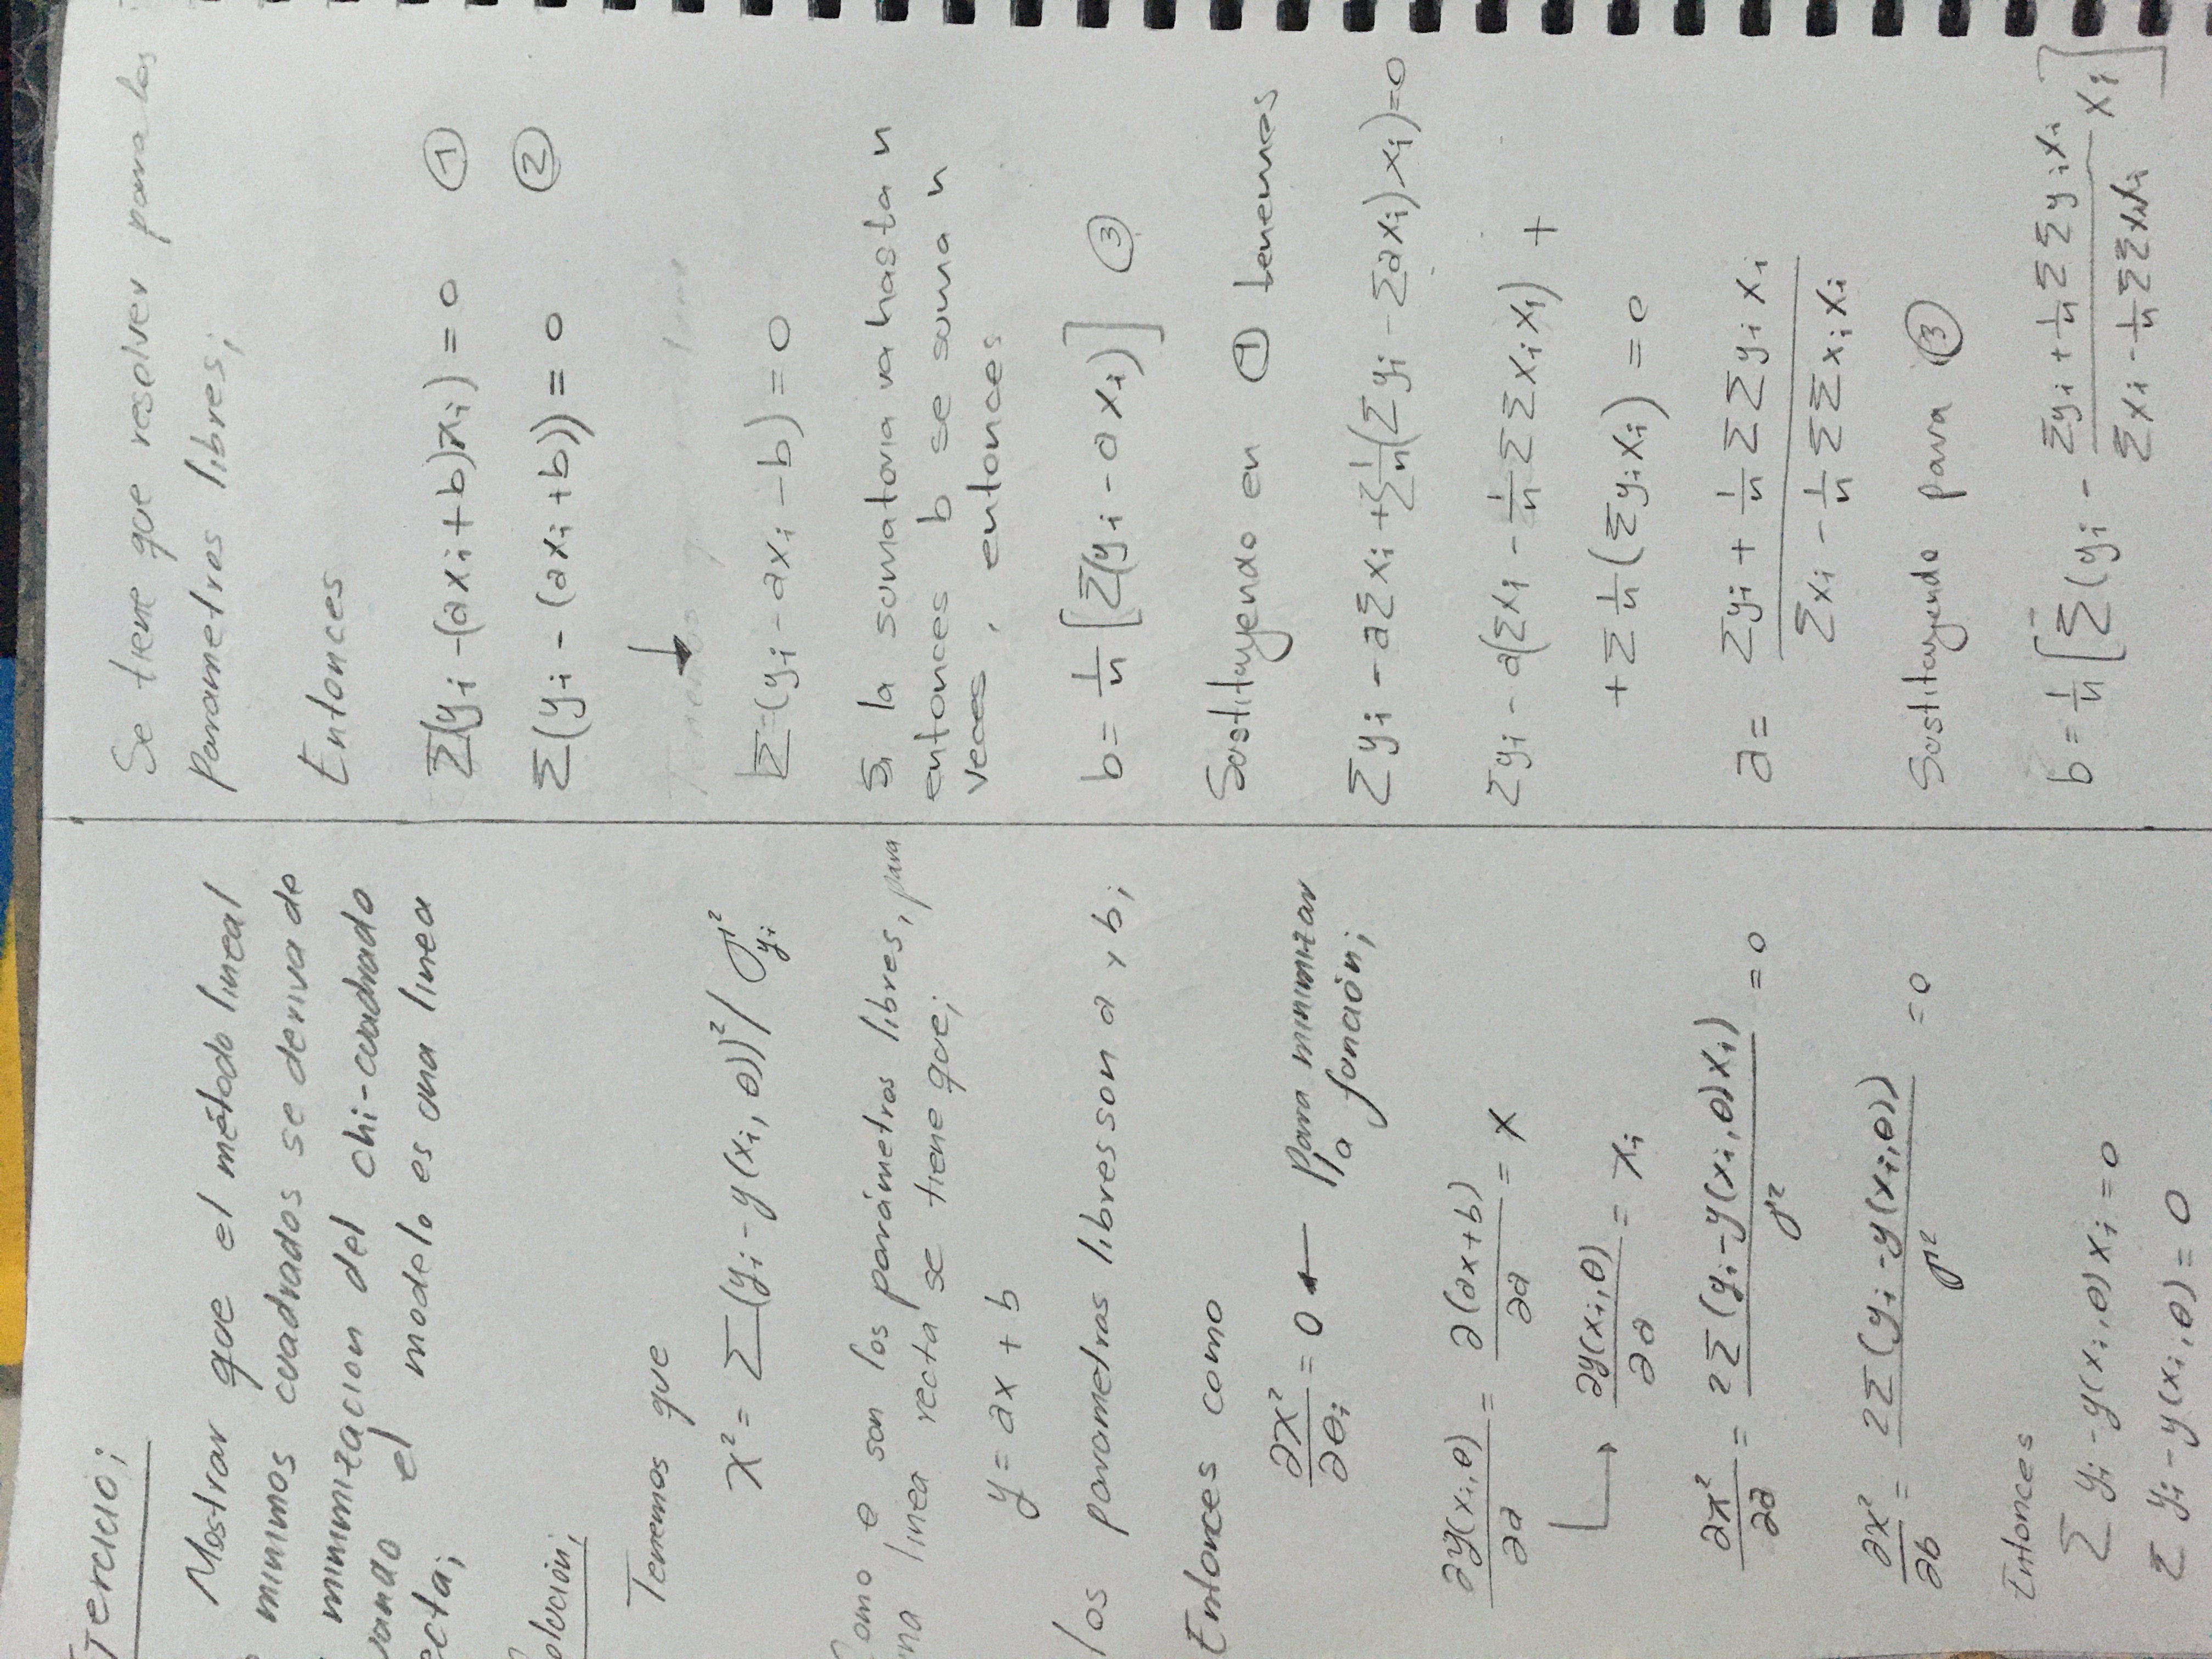 jercicio;
Mostrar que el método lineal
minimos cuadrados se deriva de
minimización del chi-cuadrado
uando el modelo es una linea
ecta;
olución;
Tenemos que
χ² = Σ(yᵢ - y(xᵢ, θ))² / σ²yᵢ
Como θ son los parámetros libres, para
na linea recta se tiene que;
y = ax + b
los parametros libres son a y b;
Entonces como
∂χ²/∂θᵢ = 0 ← para minimizar
la función;
∂y(xᵢ,θ)/∂a = ∂(ax+b)/∂a = x
↳ ∂y(xᵢ,θ)/∂a = xᵢ
∂χ²/∂a = 2Σ(yᵢ-y(xᵢ,θ)xᵢ)/σ² = 0
∂χ²/∂b = 2Σ(yᵢ-y(xᵢ,θ))/σ² = 0
Entonces
Σ yᵢ - y(xᵢ,θ)xᵢ = 0
Σ yᵢ - y(xᵢ,θ) = 0
Se tiene que resolver para los
parametros libres;
Entonces
Σ(yᵢ - (axᵢ + b)xᵢ) = 0 ①
Σ(yᵢ - (axᵢ + b)) = 0 ②
↓
Σ(yᵢ - axᵢ - b) = 0
Si la sumatoria va hasta n
entonces b se suma n
veces, entonces
b = 1/n [Σ(yᵢ - axᵢ)] ③
Sustituyendo en ① tenemos
Σyᵢ - aΣxᵢ + Σ1/n(Σyᵢ - Σaxᵢ)xᵢ) = 0
Σyᵢ - a(Σxᵢ - 1/n ΣΣxᵢxᵢ) +
+ Σ 1/n (Σyᵢxᵢ) = 0
a = (Σyᵢ + 1/n ΣΣyᵢxᵢ)/(Σxᵢ - 1/n ΣΣxᵢxᵢ)
Sustituyendo para ③
b = 1/n [Σ(yᵢ - (Σyᵢ + 1/n ΣΣyᵢxᵢ)/(Σxᵢ - 1/n ΣΣxᵢxᵢ) xᵢ]